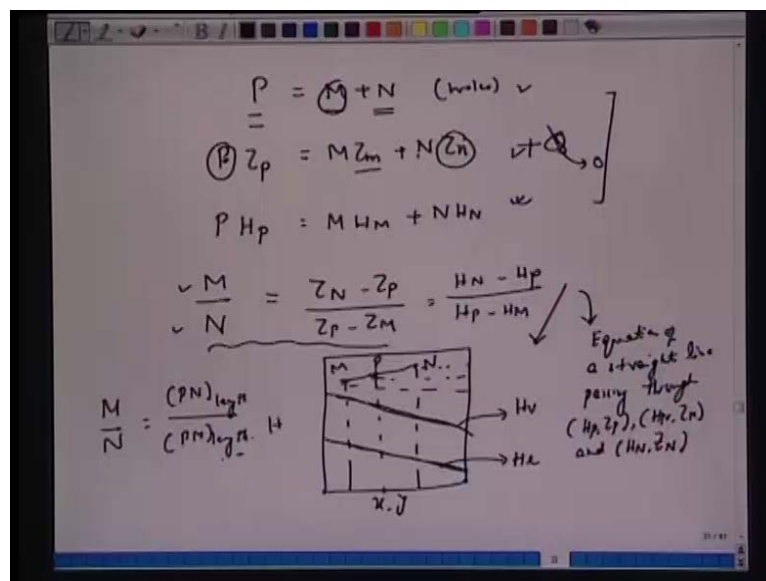 P = M + N (moles) ✓
P Zp = M Zm + N Zn ✓ + Q → 0
P Hp = M HM + N HN
✓ M / ✓ N = ZN - Zp / Zp - ZM = HN - Hp / Hp - HM
Equation of
a straight line
passing through
(Hp, Zp), (HM, ZM)
and (HN, ZN)
M P N
M / N = (PN) length / (PM) length
H
Hv
HL
x, y